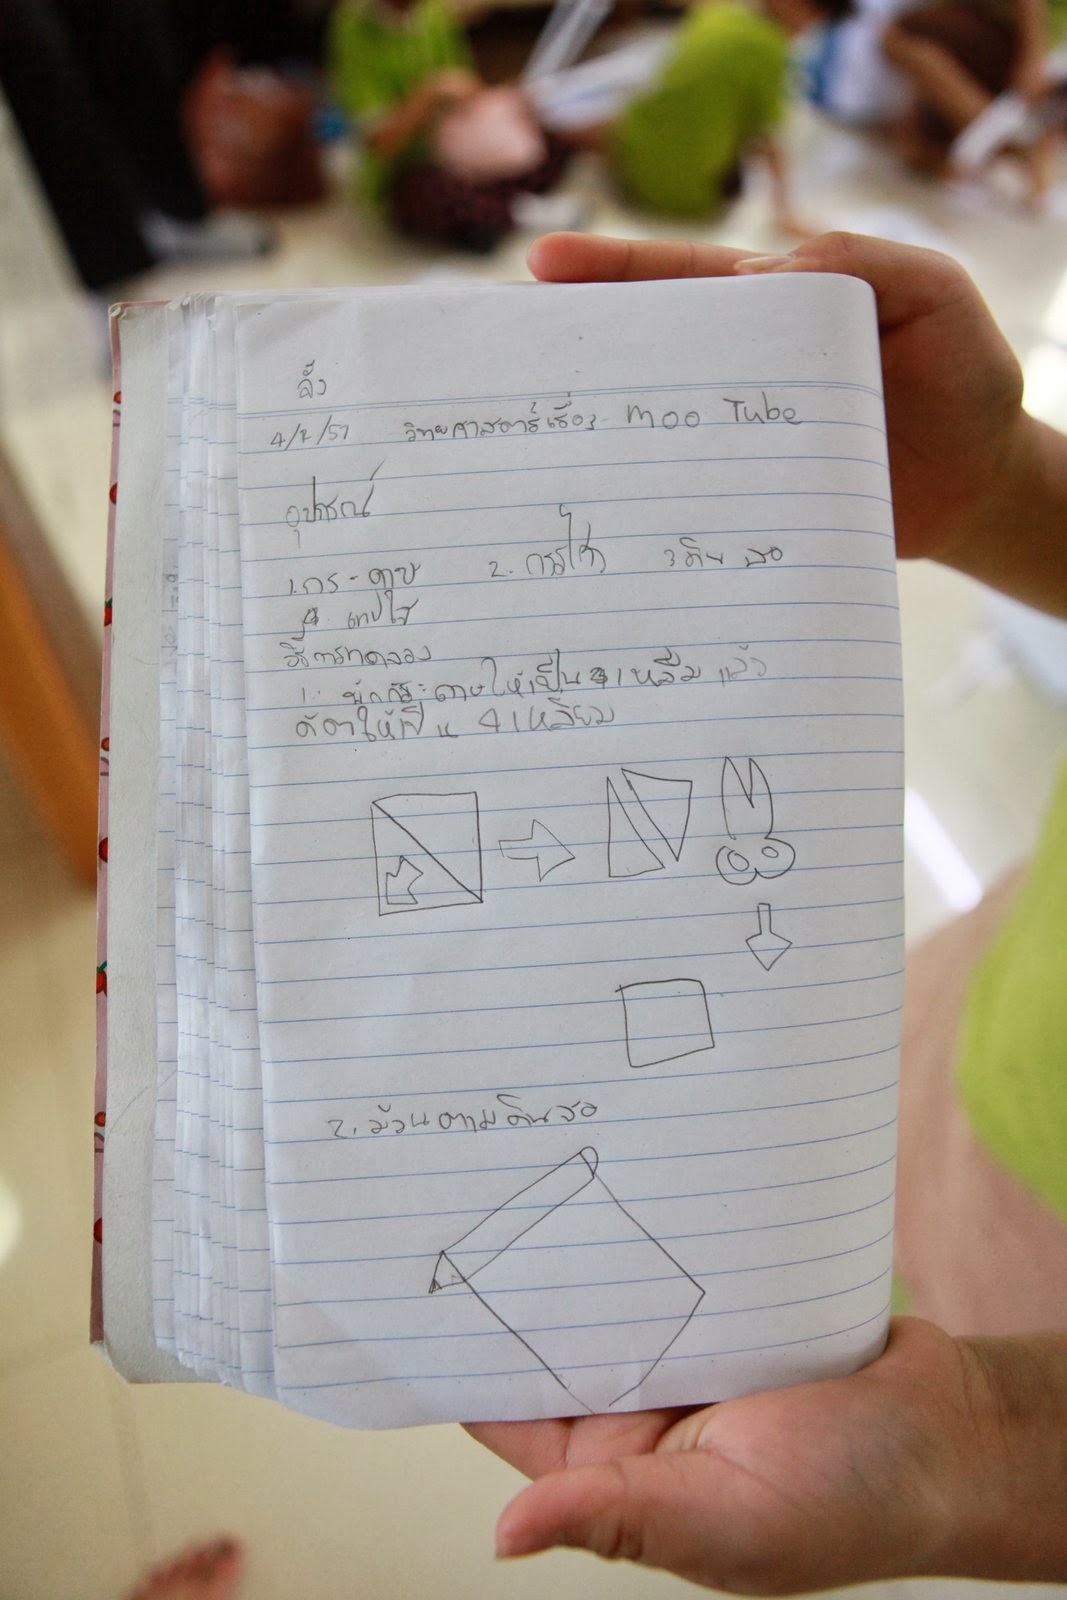 ลั้ง
4/2/57 วิทยาศาสตร์เรื่อง Moo Tube
อุปกรณ์
1.กระ-ดาษ 2. กรรไกร 3 ดินสอ
4. เทปใส
วิธีการทดลอง
1. พักกระดาษให้เป็น 31เหลี่ม แล้ว
ตัดาให้เป็น 41เหลี่ยม
2. ม้วนตามดินสอ